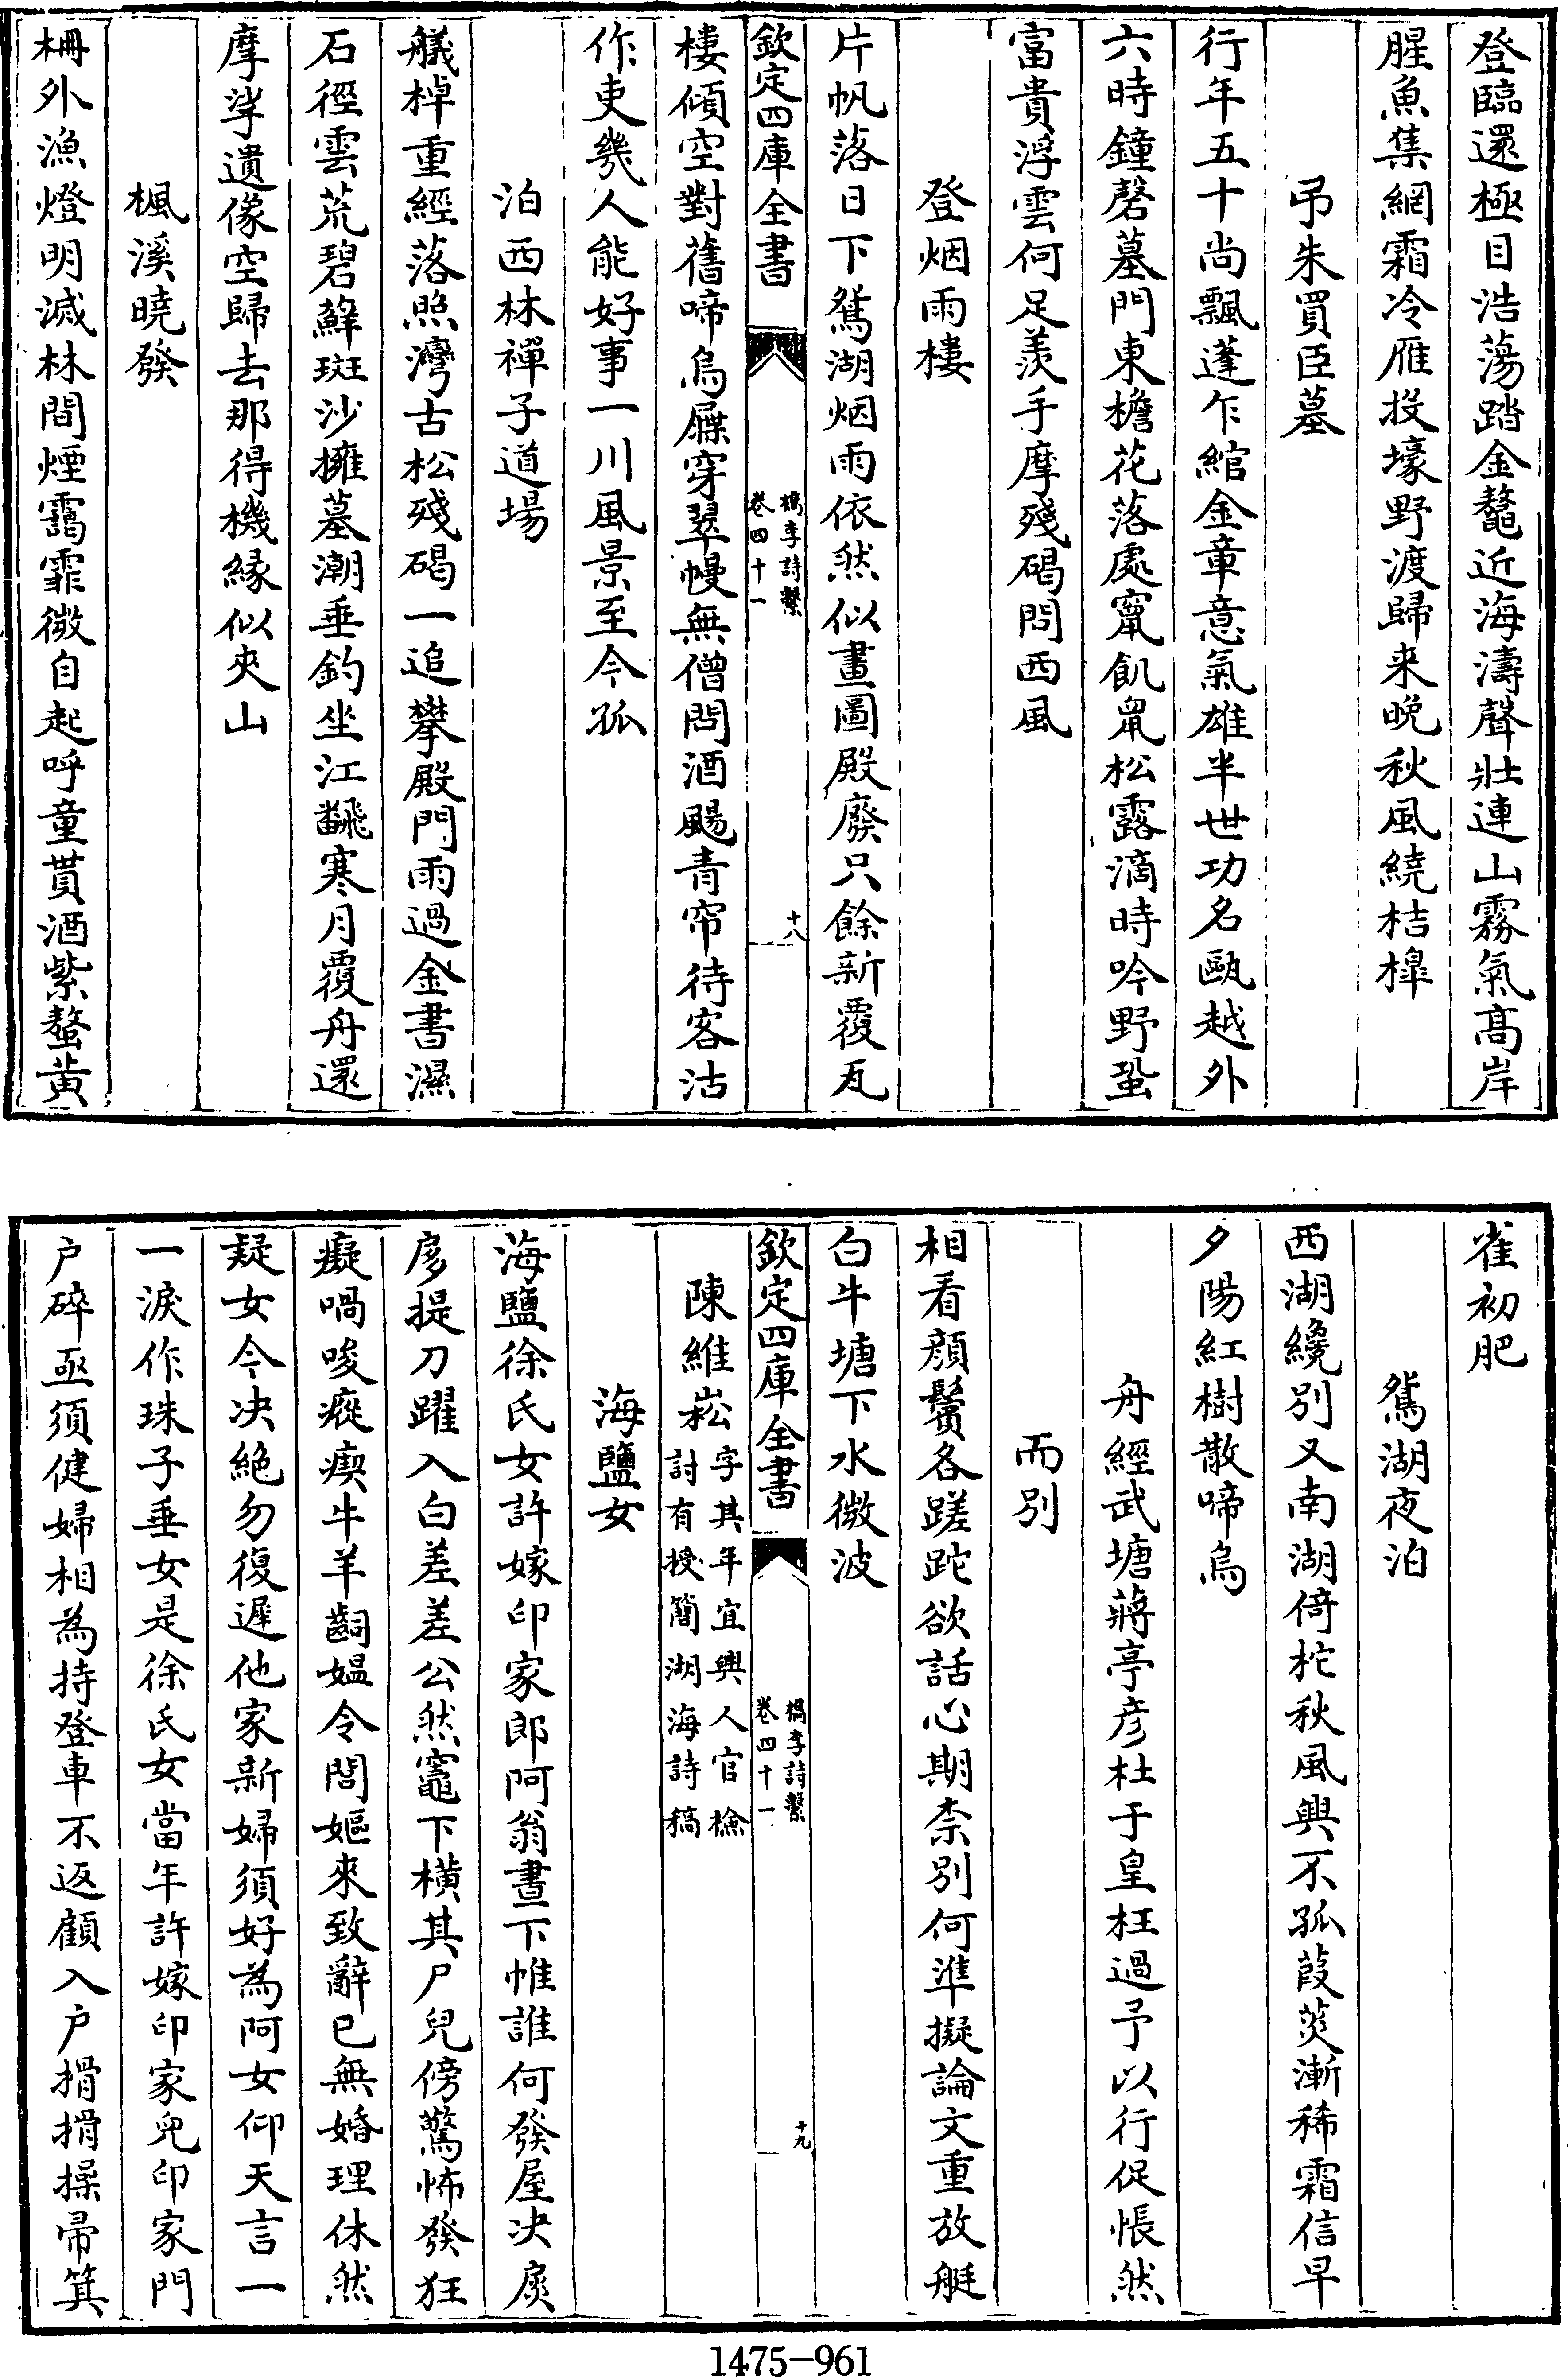 登臨還極目浩蕩踏金鼇近海濤聲壯連山霧氣髙岸
腥魚集網霜冷雁投壕野渡歸來晚秋風繞桔槔
弔朱買臣墓
行年五十尚飄蓬乍綰金章意氣雄半世功名甌越外
六時鐘磬墓門東檐花落處竄飢鼠松露滴時吟野蛩
富貴浮雲何足羨手摩殘碣問西風
登烟雨樓
片帆落日下鴛湖烟雨依然似畫圖殿廢只餘新覆瓦
欽定四庫全書
檇李詩繫
卷四十一
十八
樓傾空對舊啼烏屧穿翠幔無僧問酒颺青帘待客沽
作吏幾人能好事一川風景至今孤
泊西林禪子道場
艤棹重經落照灣古松殘碣一追攀殿門雨過金書濕
石徑雲荒碧蘚斑沙擁墓潮垂釣坐江飜寒月覆舟還
摩挲遺像空歸去那得機緣似夾山
楓溪曉發
柵外漁燈明滅林間煙靄霏微自起呼童貰酒紫螯黄
雀初肥
鴛湖夜泊
西湖纔別又南湖倚柁秋風興不孤葭菼漸稀霜信早
夕陽紅樹散啼烏
舟經武塘蔣亭彦杜于皇枉過予以行促悵然
而別
相看顔鬢各蹉跎欲話心期柰別何準擬論文重放艇
白牛塘下水微波
欽定四庫全書
檇李詩繫
卷四十一
十九
陳維崧字其年宜興人官檢
討有授簡湖海詩稿
海鹽女
海鹽徐氏女許嫁印家郎阿翁晝下帷誰何發屋决扊
扅提刀躍入白差差公然竈下横其尸兒傍驚怖發狂
癡喎唆瘲瘈牛羊齝媪令閭嫗來致辭已無婚理休然
疑女今决絶勿復遲他家新婦須好為阿女仰天言一
一淚作珠子垂女是徐氏女當年許嫁印家兒印家門
户碎亟須健婦相為持登車不返顧入户搰搰操帚箕
1475-961